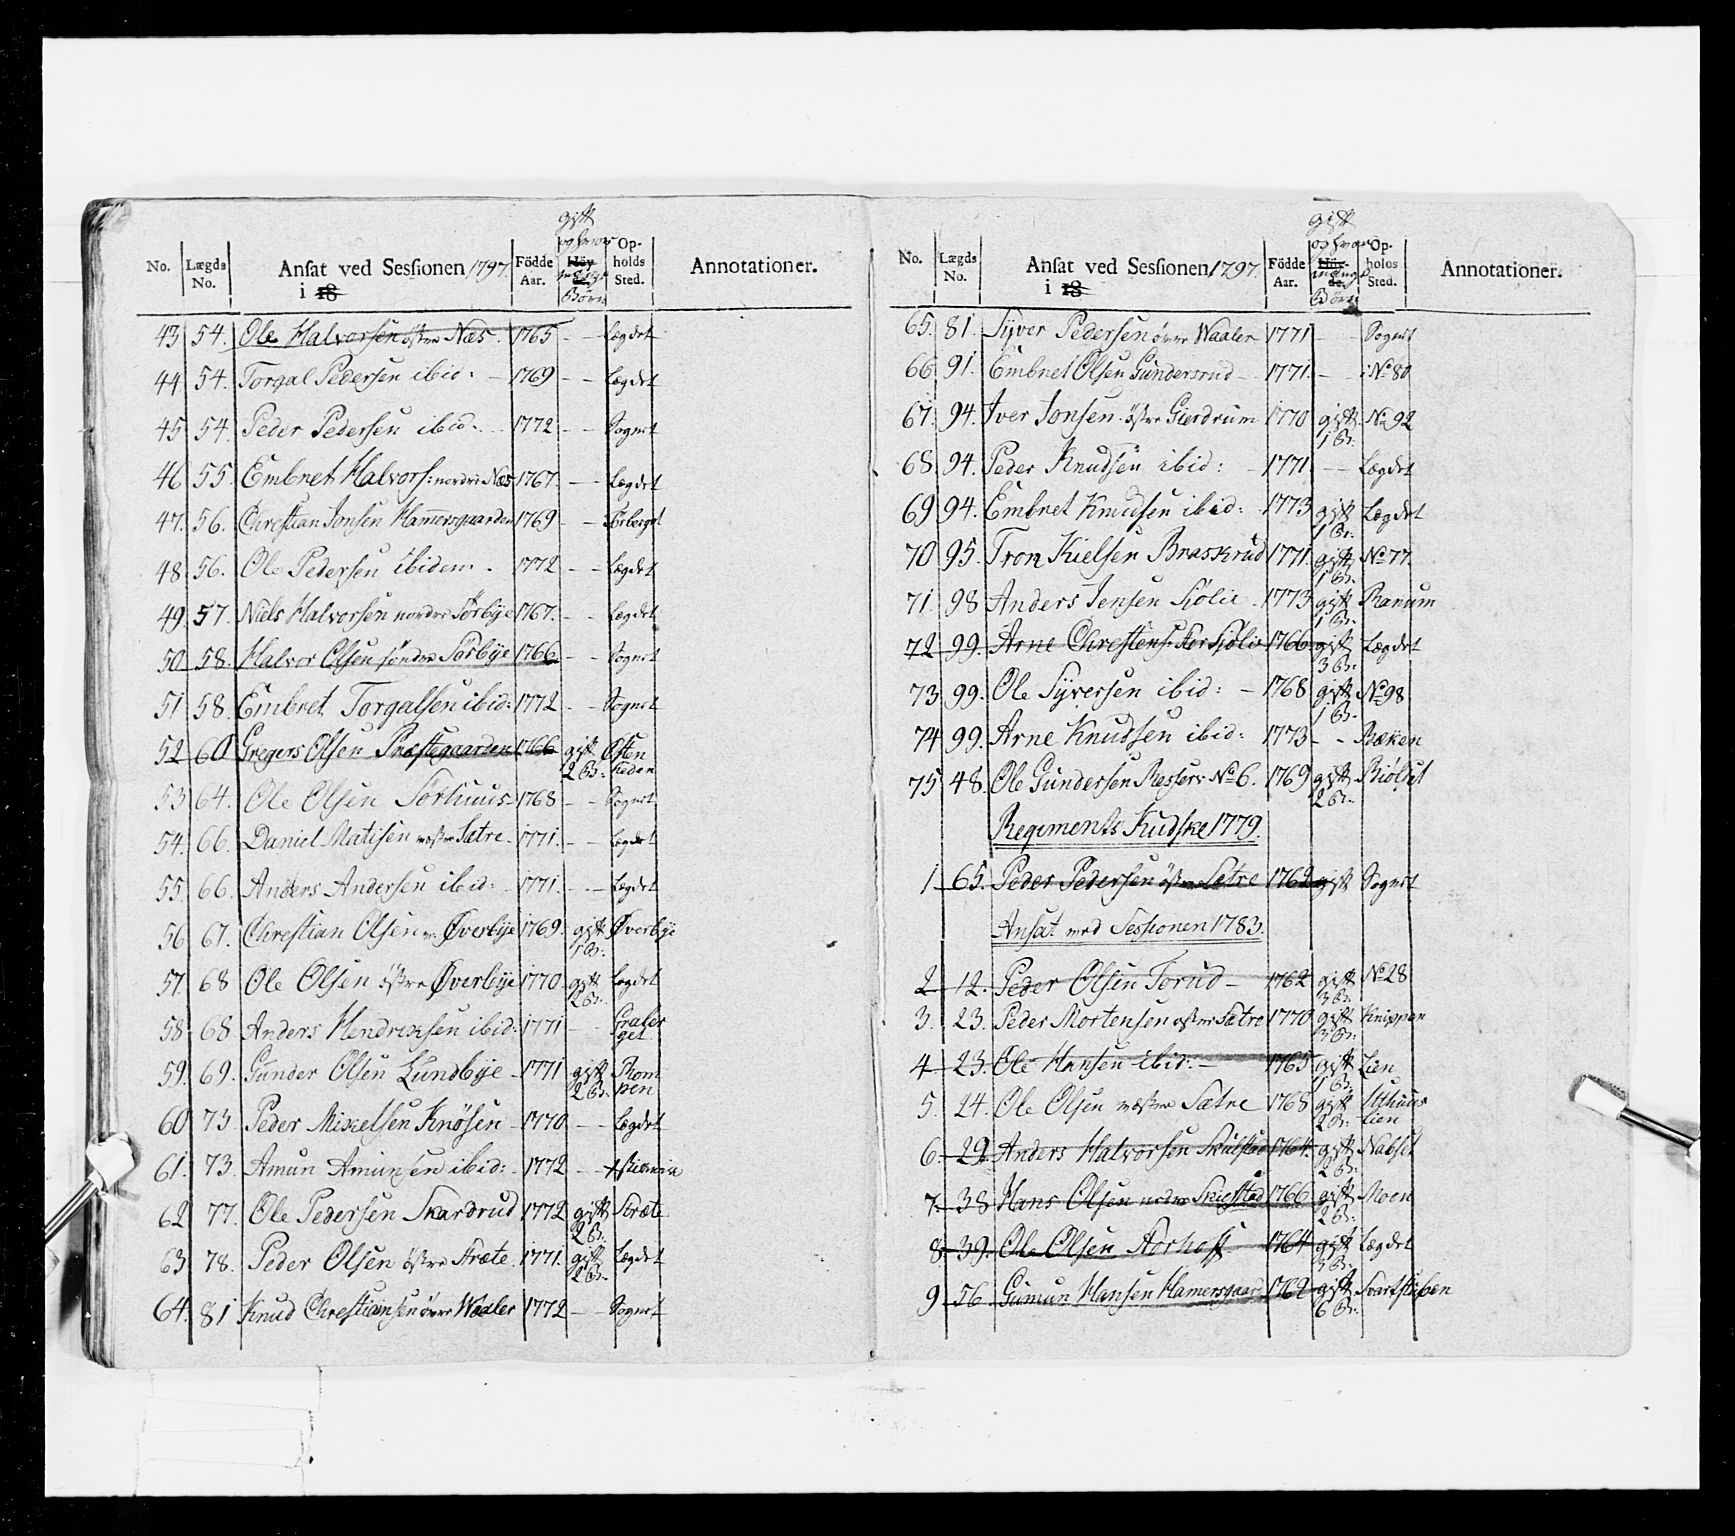 No. Lægds No. Ansat ved Sessionen 1797. i 18 Födde Aar. gift og hvor mange Börn Höy Opholds Sted. Annotationer.
43 54. Ole Halvorsen östre Næs. 1765 - - Lægdet
44 54. Torgal Pedersen ibid: - 1769 - - Lægdet
45 54. Peder Pedersen ibid. 1772 - - Sognet
46 55. Embret Halvors: nordre Næs 1767. - - Lægdet
47. 56. Christian Jonsen Hamersgaarden 1769 - - Sorberget
48 56. Ole Pedersen ibidem. 1772 - - Lægdet
49. 57. Niels Halvorsen nordre Sörbye 1767. - - Lægdet
50 58. Halvor Olsen söndre Sörbye 1766 - - Sognet
51 58. Embret Torgalsen ibid: 1772 - - Sognet
52 60 Gregers Olsen Præstegaarden 1766 gift 2 B:. Osten heden
53 64. Ole Olsen Sorhuus 1768 - - Sognet
54. 66. Daniel Matisen vestre Sætre. 1771. - - Lægdet
55. 66. Anders Andersen ibid: 1771. - - Lægdet
56 67. Christian Olsen v. Øverbye 1769. gift 1 B:. Øverbye
57. 68 Ole Olsen östre Øverbye 1770 gift 2 B:. Lægdet
58. 68 Anders Hendriksen ibid: 1771 - - Graber get
59. 69. Gunder Olsen Lundbye 1771 gift 2 B:. Rom pen
60 73. Peder Mikelsen Knösen 1770. - - Lægdet
61. 73. Amun Amunsen ibid: 1772 - - Xstiania
62 77. Ole Pedersen Skardrud 1772 gift 2 B:. Stræte
63 78. Peder Olsen östre Fræte. 1771. gift 2 B:. Lægdet
64. 81 Knud Christiansen övre Waaler 1772 - - Sognet
No. Lægds No. Ansat ved Sessionen 1797. i 18 Födde Aar. gift og hvor mange Börn Höyde. Opholds Sted. Annotationer.
65. 81. Syver Pedersen övre Waaler 1771 - - Sognet
66 91. Embret Olsen Gundersrud - 1771. - - i No 80
67. 94. Iver Jonsen östre Gierdrum 1770 gift 1 B:. No 92
68. 94. Peder Knudsen ibid: - 1771. - - Lægdet
69 94. Embret Knudsen ibid: 1773 gift 1 B:. Lægdet
70 95. Tron Kielsen Braskrud 1771. gift 1 B:. No 77.
71. 98 Anders Jensen Sjölie. 1773 gift 1 B:. Ranum
72 99. Arne Christens: Sjölie 1766 gift 3 B:. Lægdet
73 99. Ole Syversen ibid: - 1768 gift 1 B:. No 98
74 99. Arne Knudsen ibid: 1773 - - Bæken
75 48. Ole Gundersen Resserv No 6. 1769 gift 2 B:. Biölset
Regiments Kudske 1779.
1 65. Peder Pedersen östre Sætre 1762 gift Sognet
Ansat ved Sessionen 1783.
2 12. Peder Olsen Torud - 1762 gift 3 B:. No 28
3. 23. Peder Mortensen östre Sætre 1770 gift 3 B:. Knippen
4 23. Ole Hansen ibid: - 1765 gift 1 B:. Lien
5. 24. Ole Olsen vestre Sætre 1768 gift 2 B:. lien
6. 29. Anders Halvorsen Skulstad 1764. gift 2 B:. Nabset
7. 38 Hans Olsen nedre Skulstad 1766 gift 2 B:. Moen
8. 39. Ole Olsen Aarhoff 1764 gift 3 B:. Lægdet
9 56. Gumun Hansen Hamersgaar 1762 gift 6 B:. Svartstuben